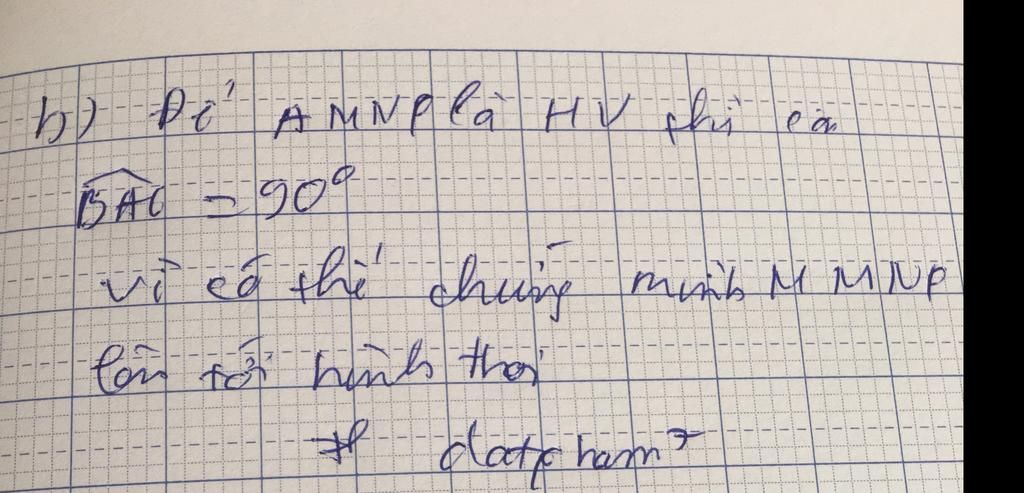 b) Để AMNP là HV thì cần
BAC = 90°
vì có thể chứng minh M MNP
lên tới hình thoi
# datpham